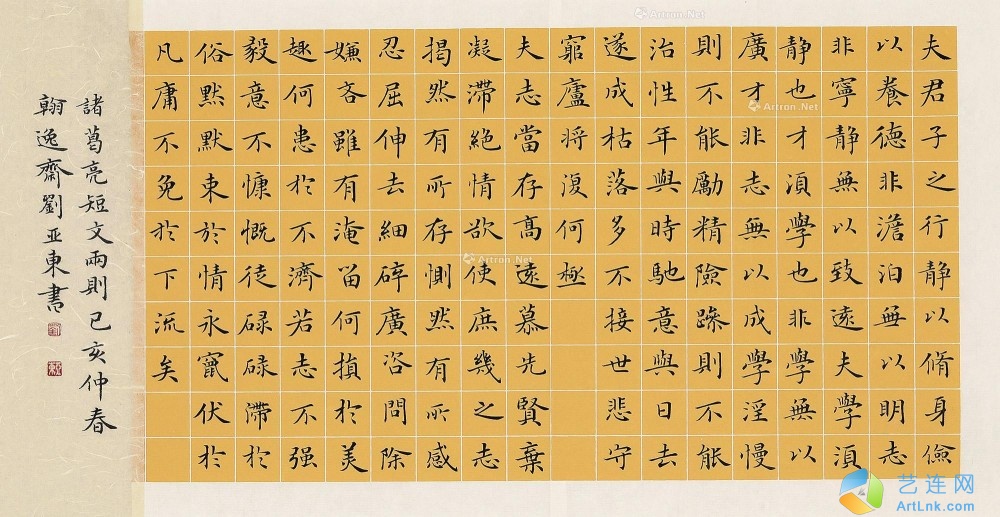 夫君子之行静以脩身儉
以養德非澹泊無以明志
非寧静無以致遠夫學須
静也才須學也非學無以
廣才非志無以成學淫慢
則不能勵精險躁則不能
治性年與時馳意與日去
遂成枯落多不接世悲守
窮廬將復何極
夫志當存高遠慕先賢棄
凝滯絶情欲使庶幾之志
揭然有所存惻然有所感
忍屈伸去細碎廣咨問除
嫌吝雖有淹留何損於美
趣何患於不濟若志不强
毅意不慷慨徒碌碌滯於
俗默默束於情永竄伏於
凡庸不免於下流矣
諸葛亮短文兩則己亥仲春
翰逸齋劉亚東書
Artron.Net
Artron.Net
Artron.Net
艺连网
ArtLnk.com